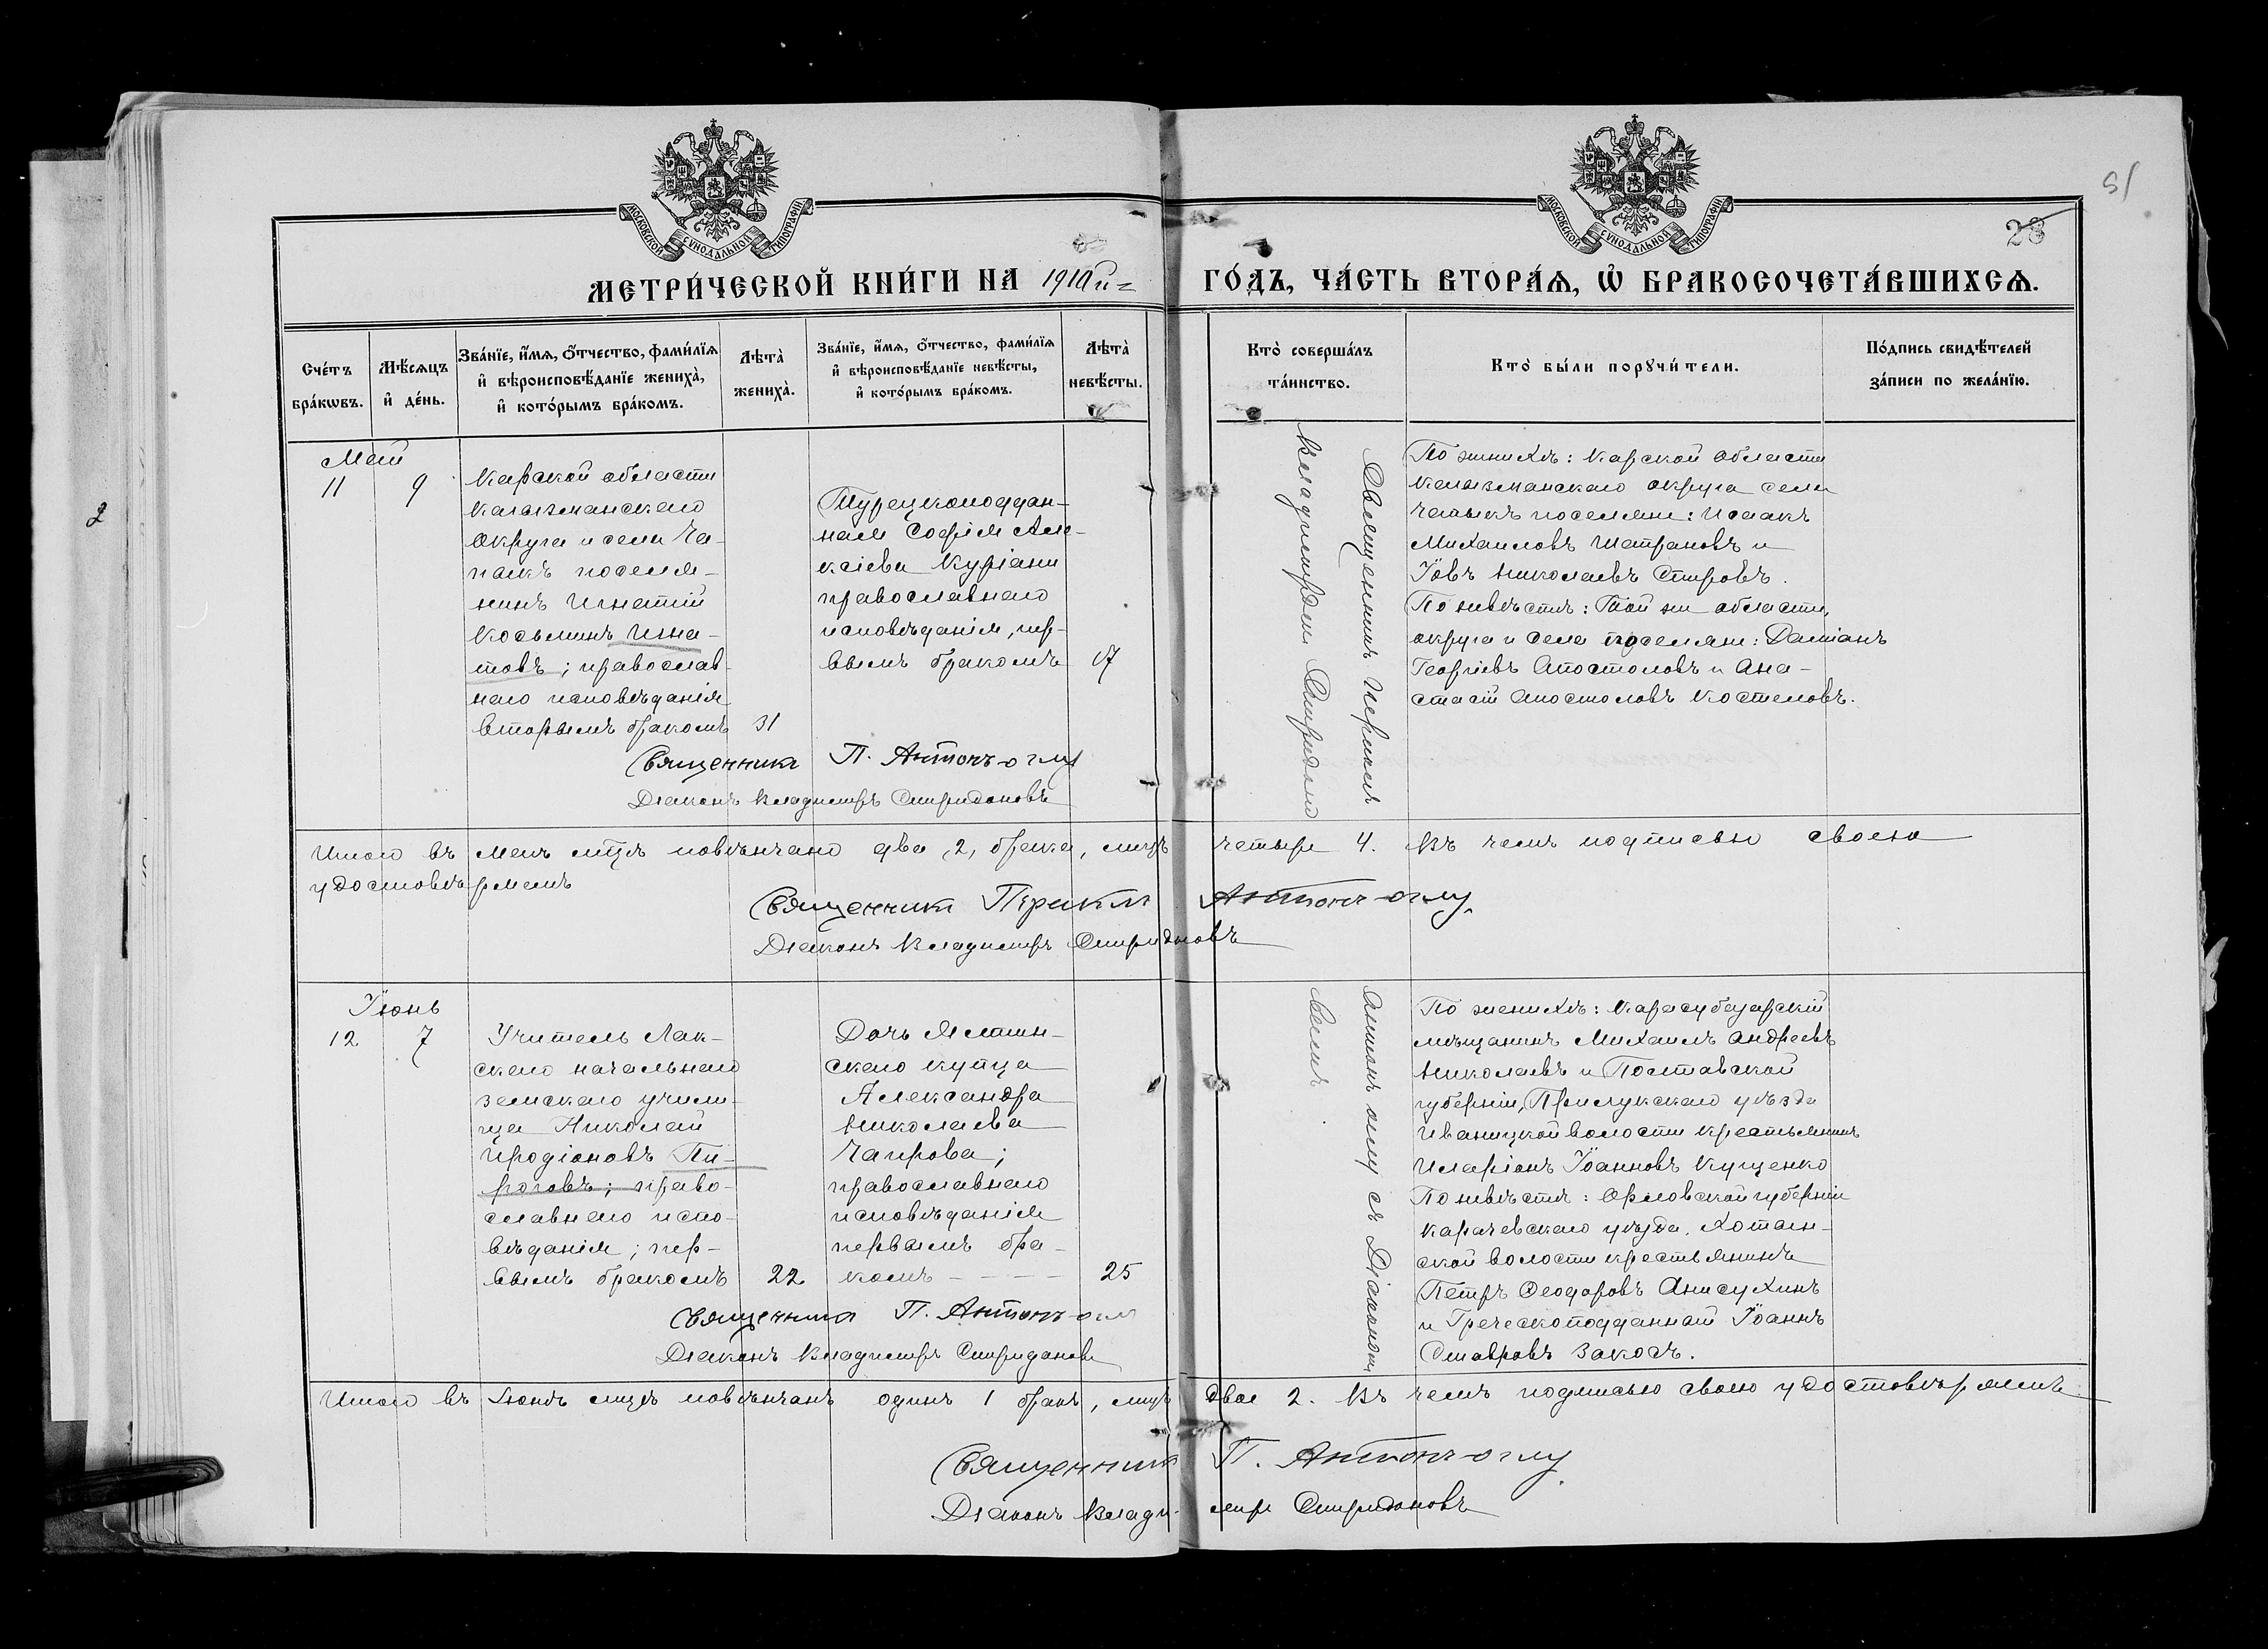 МОСКОВСКОЙ СѴНОДАЛЬНОЙ ТИПОГРАФІИ
МОСКОВСКОЙ СѴНОДАЛЬНОЙ ТИПОГРАФІИ
51
28
МЕТРИ́ЧЕСКОЙ КНИ́ГИ НА 1910й ГО́ДЪ, ЧА́СТЬ ВТОРА́Я, Ѡ҆ БРАКОСОЧЕТА́ВШИХСЯ.
Сче́тъ бра́кѡвъ.
Мѣ́сяцъ и҆ де́нь.
Зва́нїе, и҆́мя, ѻ҆́тчество, фами́лїя и҆ вѣроисповѣ́данїе жениха̀, и҆ кото́рымъ бра́комъ.
Лѣта̀ жениха̀.
Зва́нїе, и҆́мя, ѻ҆́тчество, фами́лїя и҆ вѣроисповѣ́данїе невѣ́сты, и҆ кото́рымъ бра́комъ.
Лѣта̀ невѣ́сты.
Кто̀ соверша́лъ та́инство.
Кто̀ бы́ли порꙋчи́тели.
По́дпись свидѣ́телей за́писи по жела́нїю.
Май
11
9
Карской области
Кагызманскаго
округа и села Ча-
пакъ поселя-
нинъ Игнатій
Косьминъ Игна-
товъ; православ-
наго исповѣданія
вторымъ бракомъ
31
Турецкоподдан-
ная Софія Але-
ксіева Куріани
православнаго
исповѣданія, пер-
вымъ бракомъ
17
Священникъ Периклъ
Владимiромъ Спиридоно
По женихѣ: Карской области
Кагызманскаго округа села
поселяне: Исаакъ
Михаиловъ Шатрановъ и
Іовъ Николаевъ Спировъ.
По невѣстѣ: Той же области,
округа и села поселяне: Даміанъ
Георгіевъ Апостоловъ и Ана-
стасій Апостоловъ Костеловъ.
Священникъ П. Антонъ-оглу
Діаконъ Владимiръ Спиридоновъ
Итого въ маѣ мцѣ повѣнчано два, 2, брака, лицъ четыре 4. Въ чемъ подписью своею
удостовѣряемъ
Священникъ Периклъ Антонъ-оглу.
Діаконъ Владимiръ Спиридоновъ
Іюнь
12
7
Учитель Лак-
скаго начальнаго
земскаго учили-
ща Николай
Иродіоновъ Пи-
роговъ; право-
славнаго испо-
вѣданія; пер-
вымъ бракомъ
22
Дочь Ялтин-
скаго купца
Александра
Николаева
Чаирова;
православнаго
исповѣданія
первымъ бра-
комъ
25
Антонъ оглу съ Діакономъ
вымъ.
По женихѣ: Карасубазарскій
мѣщанинъ Михаилъ Андреевъ
Николаевъ и Полтавской
губерніи, Прилукскаго уѣзда
Иваницкой волости крестьянинъ
Иларіонъ Іоанновъ Кущенко
По невѣстѣ: Орловской губерніи
Карачевскаго уѣзда, Хотын-
ской волости крестьянинъ
Петръ Ѳеодоровъ Анисухинъ
и Греческоподданный Іоаннъ
Ставровъ Закосъ.
Священникъ П. Антонъ-огл
Діаконъ Владимiръ Спиридоновъ
Итого въ Іюнѣ мцѣ повѣнчанъ одинъ 1 бракъ, лицъ двое 2. Въ чемъ подписью своею удостовѣряемъ
Священникъ П. Антонъ-оглу.
Діаконъ Владимiръ Спиридоновъ